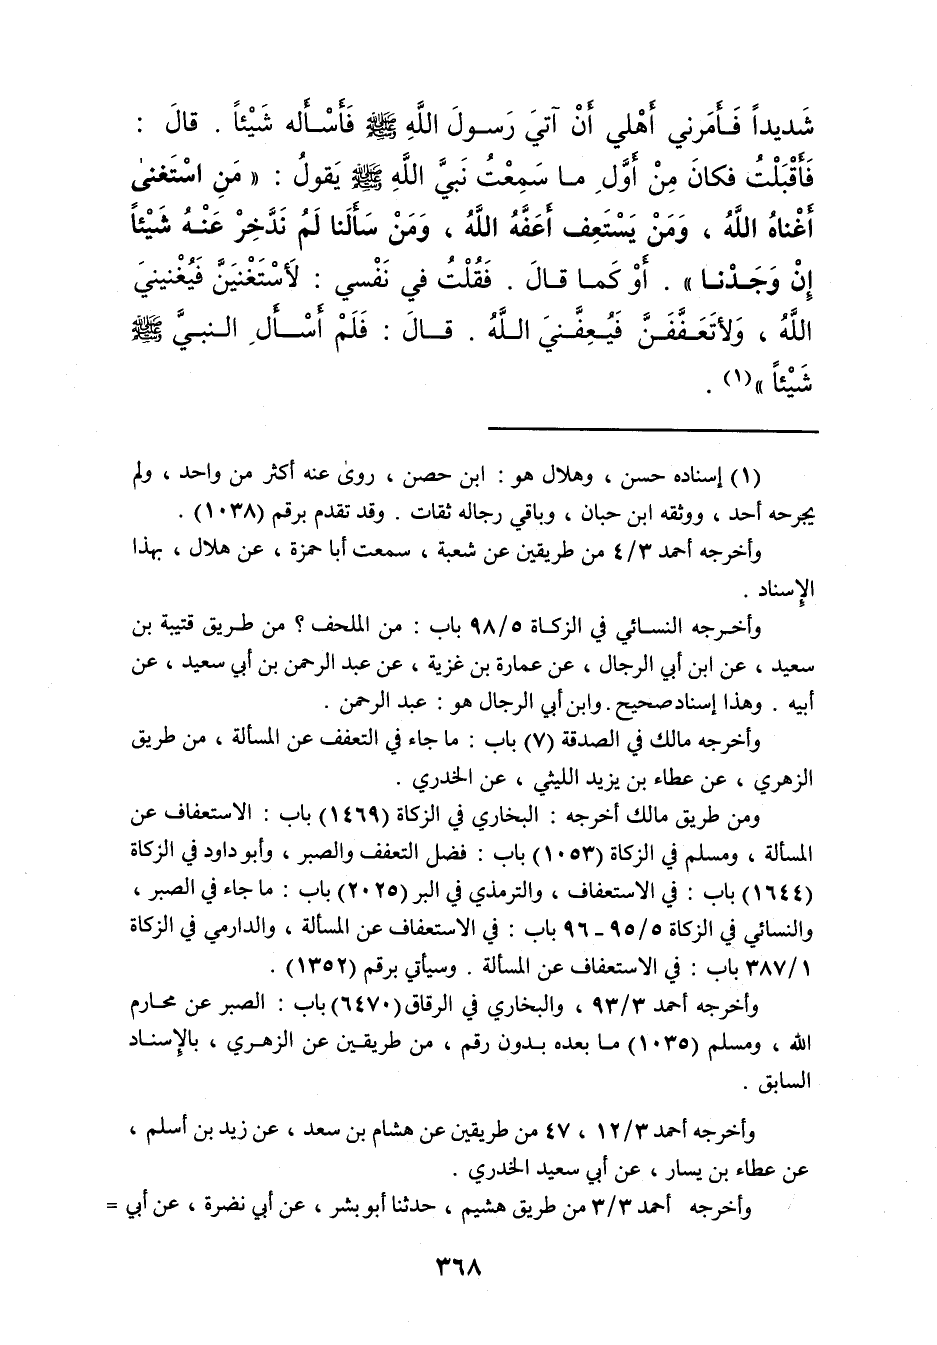 شَديداً فَـأَمَرني أَهْلي أَنْ آتيَ رَسـولَ اللَّهِ ﷺ فَأَسْـأَله شَيْئاً . قالَ :
فَأَقْبَلْتُ فكانَ مِنْ أَوَّلِ مـا سَمِعْتُ نَبيَّ اللَّهِ ﷺ يَقولُ : « مَنِ اسْتَغنىٰ
أَغْناهُ اللَّهُ ، وَمَنْ يَسْتَعِف أَعَفَّهُ اللَّهُ ، وَمَنْ سَأَلَنا لَمْ نَدَّخِرْ عَنْـهُ شَيْئاً
إِنْ وَجَـدْنـا » . أَوْ كَمـا قـالَ . فَقُلْتُ في نَفْسي : لَأسْتَغْنيَنَّ فَيُغْنينيَ
اللَّهُ ، وَلأتَعَـفَّفَـنَّ فَيُـعِفَّـنيَ الـلَّهُ . قـالَ : فَلَمْ أَسْـأَلِ الـنبـيَّ ﷺ
شَيْئاً »(١) .
(١) إسناده حسن ، وهلال هو : ابن حصن ، روىٰ عنه أكثر من واحد ، ولم
يجرحه أحد ، ووثقه ابن حبان ، وباقي رجاله ثقات . وقد تقدم برقم (١٠٣٨) .
وأخرجه أحمد ٤/٣ من طريقين عن شعبة ، سمعت أبا حمزة ، عن هلال ، بهذا
الإسناد .
وأخـرجه النسـائي في الزكـاة ٩٨/٥ باب : من الملحف ؟ من طـريق قتيبة بن
سعيد ، عن ابن أبي الرجال ، عن عمارة بن غزية ، عن عبد الرحمن بن أبي سعيد ، عن
أبيه . وهذا إسناد صحيح . وابن أبي الرجال هو : عبد الرحمن .
وأخرجه مالك في الصدقة (٧) باب : ما جاء في التعفف عن المسألة ، من طريق
الزهري ، عن عطاء بن يزيد الليثي ، عن الخدري .
ومن طريق مالك أخرجه : البخاري في الزكاة (١٤٦٩) باب : الاستعفاف عن
المسألة ، ومسلم في الزكاة (١٠٥٣) باب : فضل التعفف والصبر ، وأبو داود في الزكاة
(١٦٤٤) باب : في الاستعفاف ، والترمذي في البر (٢٠٢٥) باب : ما جاء في الصبر ،
والنسائي في الزكاة ٩٥/٥ ـ ٩٦ باب : في الاستعفاف عن المسألة ، والدارمي في الزكاة
٣٨٧/١ باب : في الاستعفاف عن المسألة . وسيأتي برقم (١٣٥٢) .
وأخرجه أحمد ٩٣/٣ ، والبخاري في الرقاق (٦٤٧٠) باب : الصبر عن محـارم
الله ، ومسلم (١٠٣٥) مـا بعده بـدون رقم ، من طريقـين عن الزهـري ، بالإسنـاد
السابق .
وأخرجه أحمد ١٢/٣ ، ٤٧ من طريقين عن هشام بن سعد ، عن زيد بن أسلم ،
عن عطاء بن يسار ، عن أبي سعيد الخدري .
وأخرجه أحمد ٣/٣ من طريق هشيم ، حدثنا أبو بشر ، عن أبي نضرة ، عن أبي =
٣٦٨